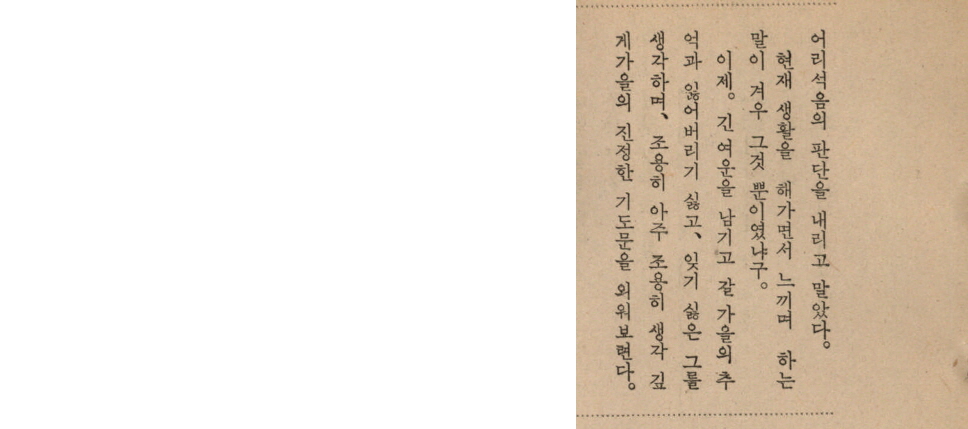 어리석음의 판단을 내리고 말았다。
현재 생활을 해가면서 느끼며 하는
말이 겨우 그것 뿐이였냐구。
이제。긴 여운을 남기고 갈 가을의 추
억과 잃어버리기 싫고、잊기 싫은 그를
생각하며、조용히 아주 조용히 생각 깊
게가을의 진정한 기도문을 외워보련다。